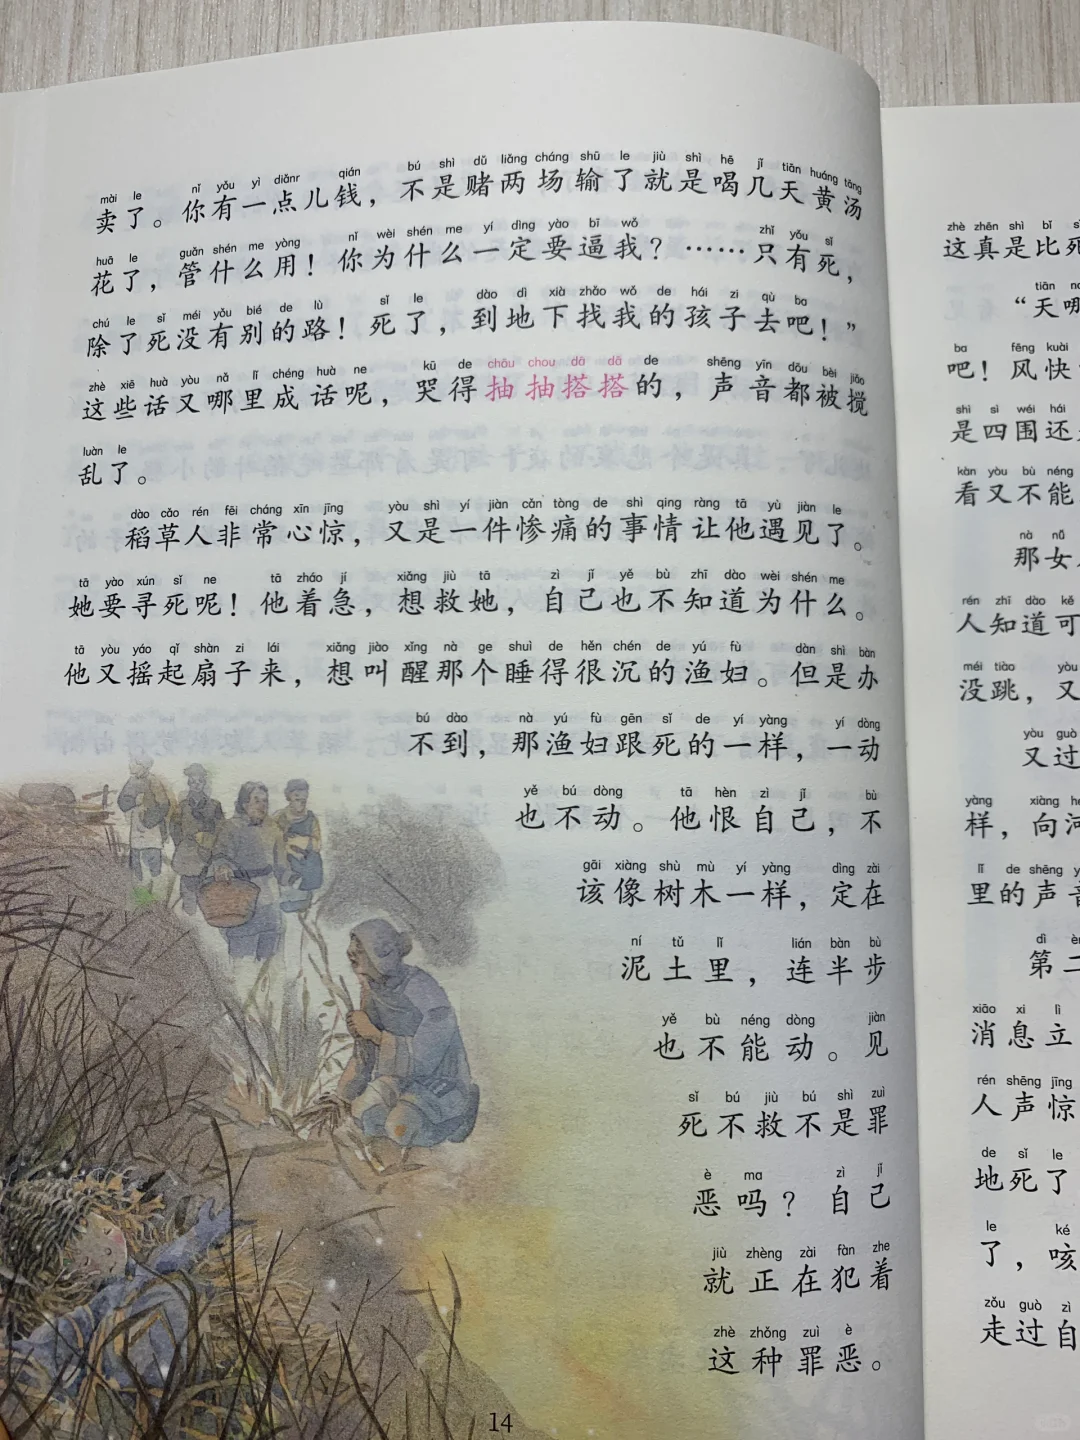 mài le nǐ yǒu yì diǎnr qián bú shì dǔ liǎng chǎng shū le jiù shì hē jǐ tiān huáng tāng
卖了。你有一点儿钱，不是赌两场输了就是喝几天黄汤
huā le guǎn shén me yòng nǐ wèi shén me yí dìng yào bī wǒ zhǐ yǒu sǐ
花了，管什么用！你为什么一定要逼我？……只有死，
chú le sǐ méi yǒu bié de lù sǐ le dào dì xià zhǎo wǒ de hái zi qù ba
除了死没有别的路！死了，到地下找我的孩子去吧！”
zhè xiē huà yòu nǎ lǐ chéng huà ne kū de chōu chou dā dā de shēng yīn dōu bèi jiǎo
这些话又哪里成话呢，哭得抽抽搭搭的，声音都被搅
luàn le
乱了。
dào cǎo rén fēi cháng xīn jīng yòu shì yí jiàn cǎn tòng de shì qing ràng tā yù jiàn le
稻草人非常心惊，又是一件惨痛的事情让他遇见了。
tā yào xún sǐ ne tā zháo jí xiǎng jiù tā zì jǐ yě bù zhī dào wèi shén me
她要寻死呢！他着急，想救她，自己也不知道为什么。
tā yòu yáo qǐ shàn zi lái xiǎng jiào xǐng nà ge shuì de hěn chén de yú fù dàn shì bàn
他又摇起扇子来，想叫醒那个睡得很沉的渔妇。但是办
bú dào nà yú fù gēn sǐ de yí yàng yí dòng
不到，那渔妇跟死的一样，一动
yě bú dòng tā hèn zì jǐ bù
也不动。他恨自己，不
gāi xiàng shù mù yí yàng dìng zài
该像树木一样，定在
ní tǔ lǐ lián bàn bù
泥土里，连半步
yě bù néng dòng jiàn
也不能动。见
sǐ bú jiù bú shì zuì
死不救不是罪
è ma zì jǐ
恶吗？自己
jiù zhèng zài fàn zhe
就正在犯着
zhè zhǒng zuì è
这种罪恶。
14
zhè zhēn shì bǐ
这真是比死
tiān
“天哪
ba fēng kuài
吧！风快
shì sì wéi hái
是四围还
kàn yòu bù néng
看又不能
nà nǚ
那女
rén zhī dào kě
人知道可
méi tiào yòu
没跳，又
yòu guò
又过
yàng xiàng
样，向河
lǐ de shēng
里的声音
dì
第二
xiāo xi lì
消息立
rén shēng jīng
人声惊
de sǐ le
地死了
le ké
了，咳
zǒu guò zì
走过自